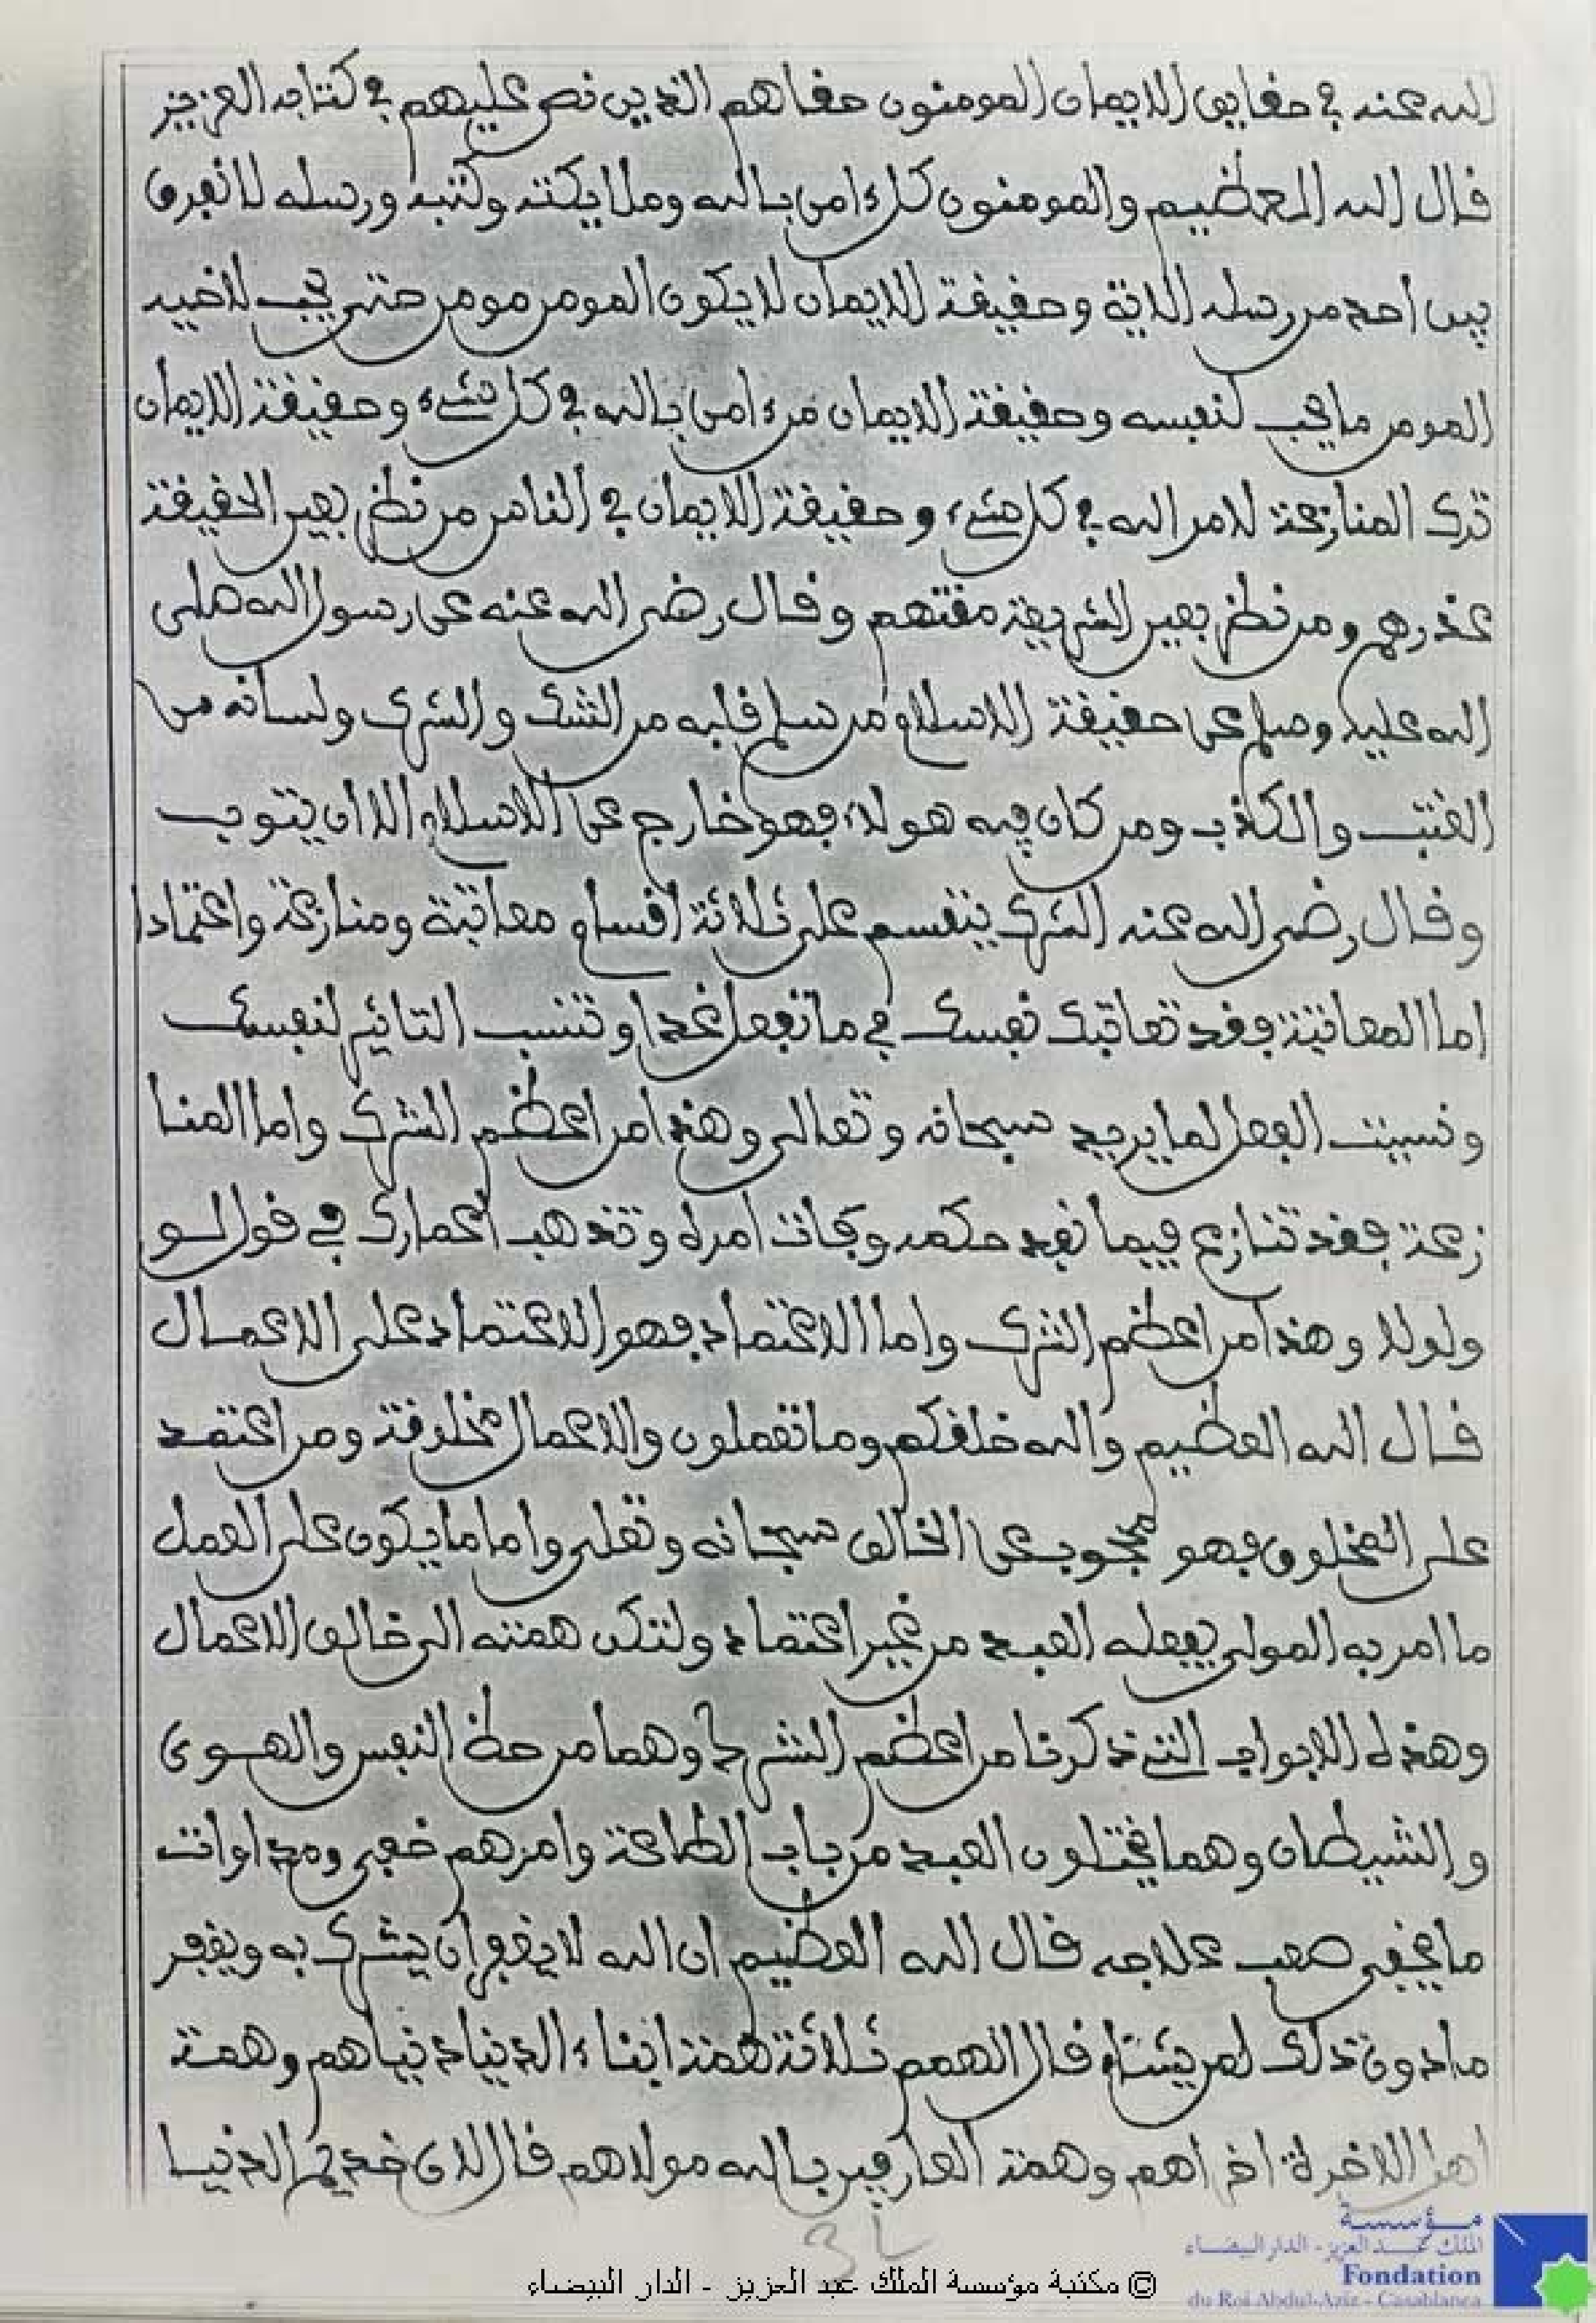 الله عنه في حقايق الايمان المومنون حقاهم الذين نص عليهم في كتابه العزيز
قال الله العظيم والمومنون كل ءامن بالله وملايكته وكتبه ورسله لا نفرق
بين احد من رسله الاية وحقيقة الايمان لا يكون المومن مومن حتى يحب لاخيه
المومن ما يحب لنفسه وحقيقة الايمان من ءامن بالله في كل شيء وحقيقة الايمان
ترك المنازعة لامر الله في كل شيء وحقيقة الايمان في الناس من نظر بعين الحقيقة
عذرهم ومن نظر بعين الشريعة مقتهم وقال رضي الله عنه عن رسول الله صلى
الله عليه وسلم عن حقيقة الاسلام من سلم قلبه من الشك والشرك ولسانه من
الغتب والكذب ومن كان فيه هولاء فهو خارج عن الاسلام الا ان يتوب
وقال رضي الله عنه الشرك ينقسم على ثلاثة اقسام معاتبة ومنازعة واعتمادا
اما المعاتبة فقد تعاتبك نفسك في ما تفعل غدا وتنسب التاثير لنفسك
ونسيت الفعل لما يريد سبحانه وتعالى وهذا من اعظم الشرك واما المنا
زعة فقد تنازع فيما نفد حكمه وفات امره وتذهب اعمارك في قول لو
ولولا وهذا من اعظم الشرك واما الاعتماد فهو الاعتماد على الاعمال
قال الله العظيم والله خلقكم وما تعملون والاعمال مخلوقة ومن اعتمد
على المخلوق فهو محجوب عن الخالق سبحانه وتعلى واما ما يكون على العمل
ما امر به المولى يفعله العبد من غير اعتماد ولتكن همته الى خالق الاعمال
وهذه الابواب التي ذكرنا من اعظم الشرك وهما من حظ النفس والهوى
والشيطان وهما يختلون العبد من باب الطاعة وامرهم خفي ومداوات
ما يخفى صعب علاجه قال الله العظيم ان الله لا يغفر ان يشرك به ويغفر
ما دون ذلك لمن يشاء قال الهمم ثلاثة همة ابناء الدنيا دنياهم وهمة
اهل الاخرة اخراهم وهمة العارفين بالله مولاهم قال الذي خديم الدنيا
مؤسسة
الملك عبد العزيز - الدار البيضاء
Fondation
du Roi Abdul-Aziz - Casablanca
© مكتبة مؤسسة الملك عبد العزيز - الدار البيضاء